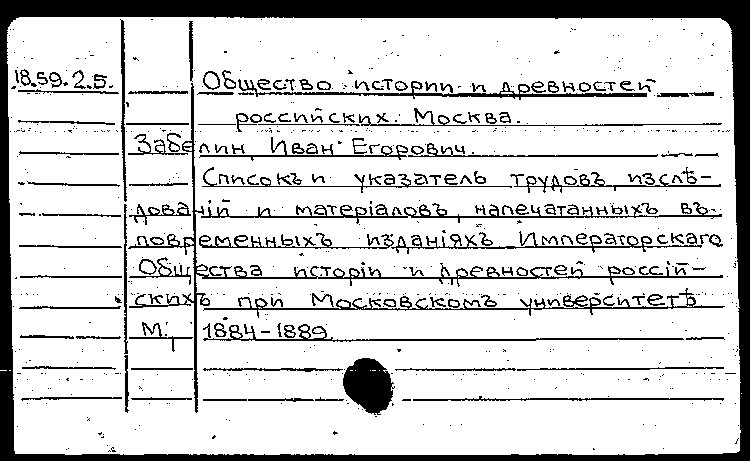 18.59.2.5. Общество истории и древностей
российских. Москва.
Забелин, Иван Егорович.
Списокъ и указатель трудовъ, изслѣ-
дованій и матеріаловъ, напечатанныхъ въ
повременныхъ изданіяхъ Императорскаго
Общества исторіи и древностей россій-
скихъ при Московскомъ университетѣ
М., 1884-1889.